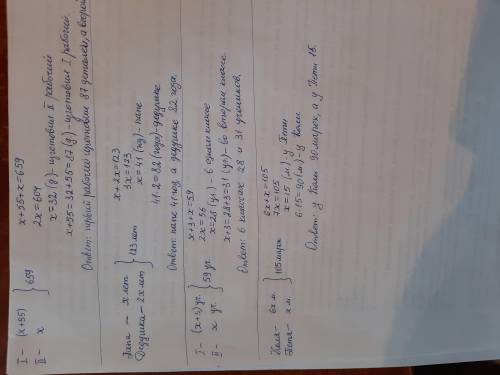 I – (x+55) } 659
II – x
x+55+x=659
2x=604
x=32(g)- изготовил II рабочий
x+55=32+55=87(g)- изготовил I рабочий.
Ответ: первый рабочий изготовил 87 деталей, а второй
Папа – x лет } 123 лет
Дедушка – 2x лет
x+2x=123
3x=123
x=41(год)- папе
41·2=82(года)-дедушке
Ответ: папе 41 год а дедушке 82 года.
I – (x+3) уч. } 59 уч.
II – x уч.
x+3+x=59
2x=56
x=28(уч.) - в одном классе
x+3=28+3=31(уч)- во втором классе.
Ответ: в классах 28 и 31 учеников,
Коля- 6x м. } 105 марок
Петя- x м.
6x+x=105
7x=105
x=15 (м.) у Пети
6·15=90(м)-у Коли.
Ответ: у Коли 90 марок, а у Пети 15.